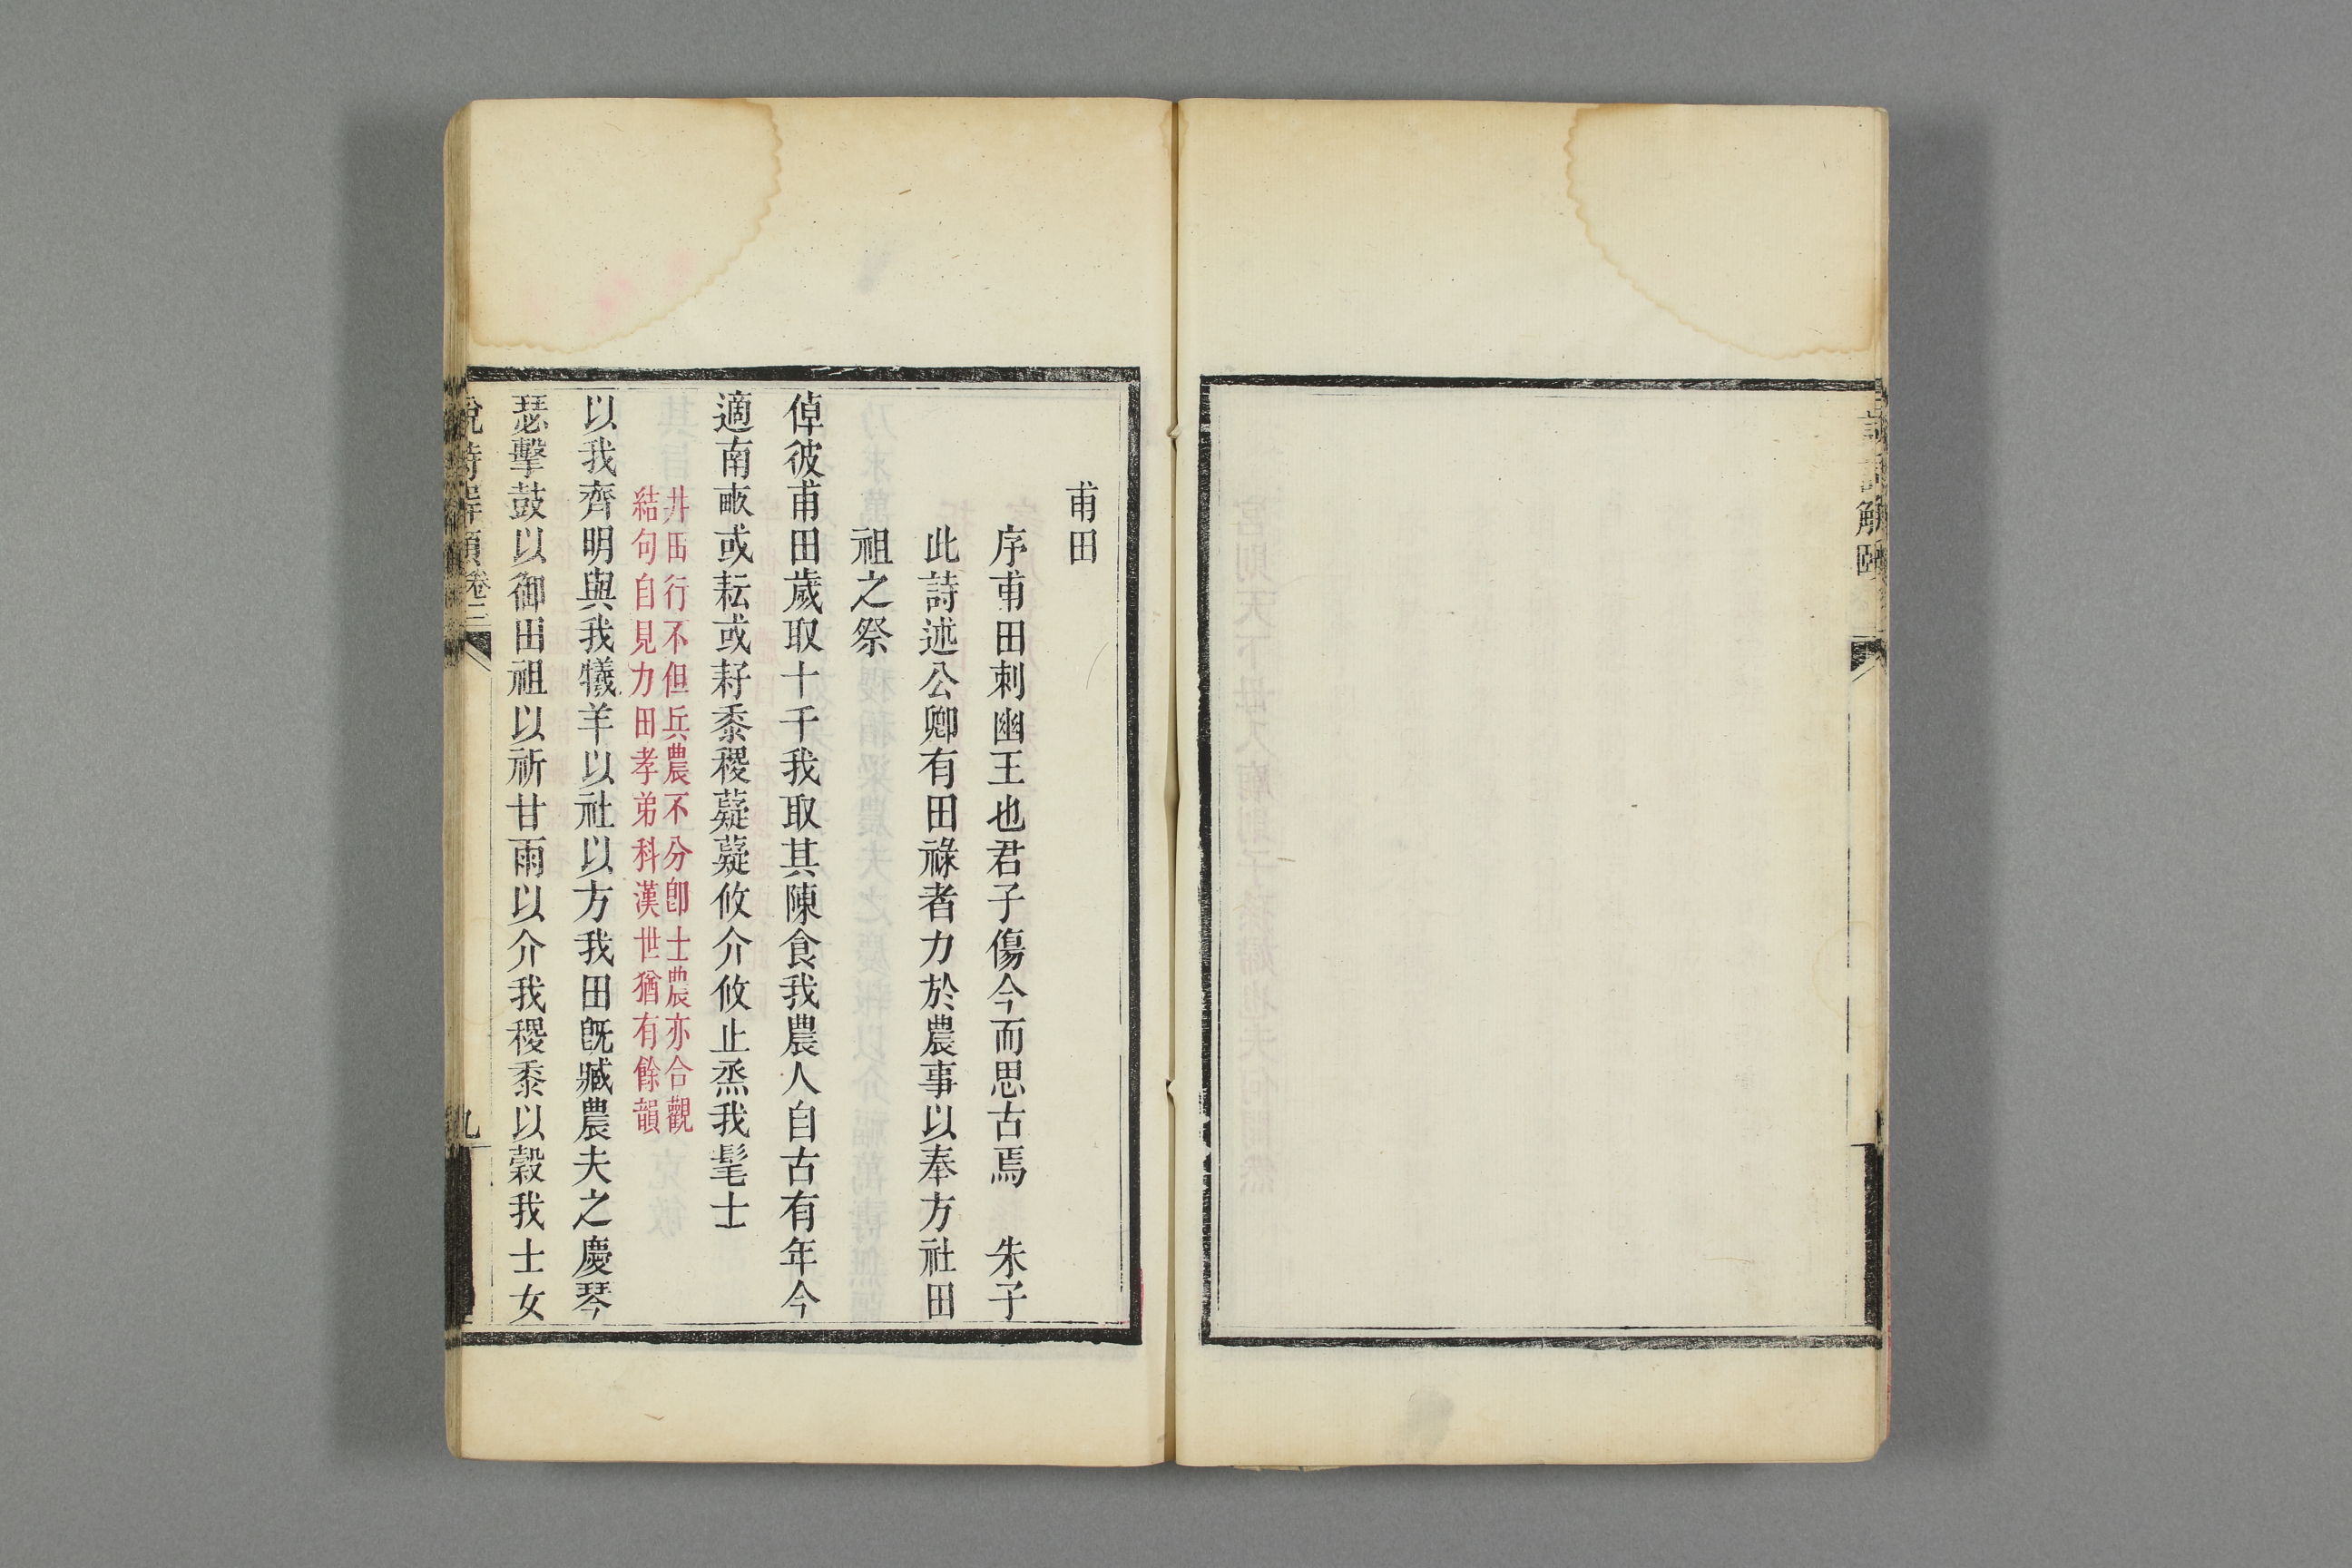 甫田
序甫田刺幽王也君子傷今而思古焉　朱子
此詩述公卿有田祿者力於農事以奉方社田
祖之祭
倬彼甫田歲取十千我取其陳食我農人自古有年今
適南畝或耘或耔黍稷薿薿攸介攸止烝我髦士
井田行不但兵農不分卽士農亦合觀
結句自見力田孝弟科漢世猶有餘韻
以我齊明與我犧羊以社以方我田旣臧農夫之慶琴
瑟擊鼓以御田祖以祈甘雨以介我稷黍以穀我士女
說詩解頤卷二
九